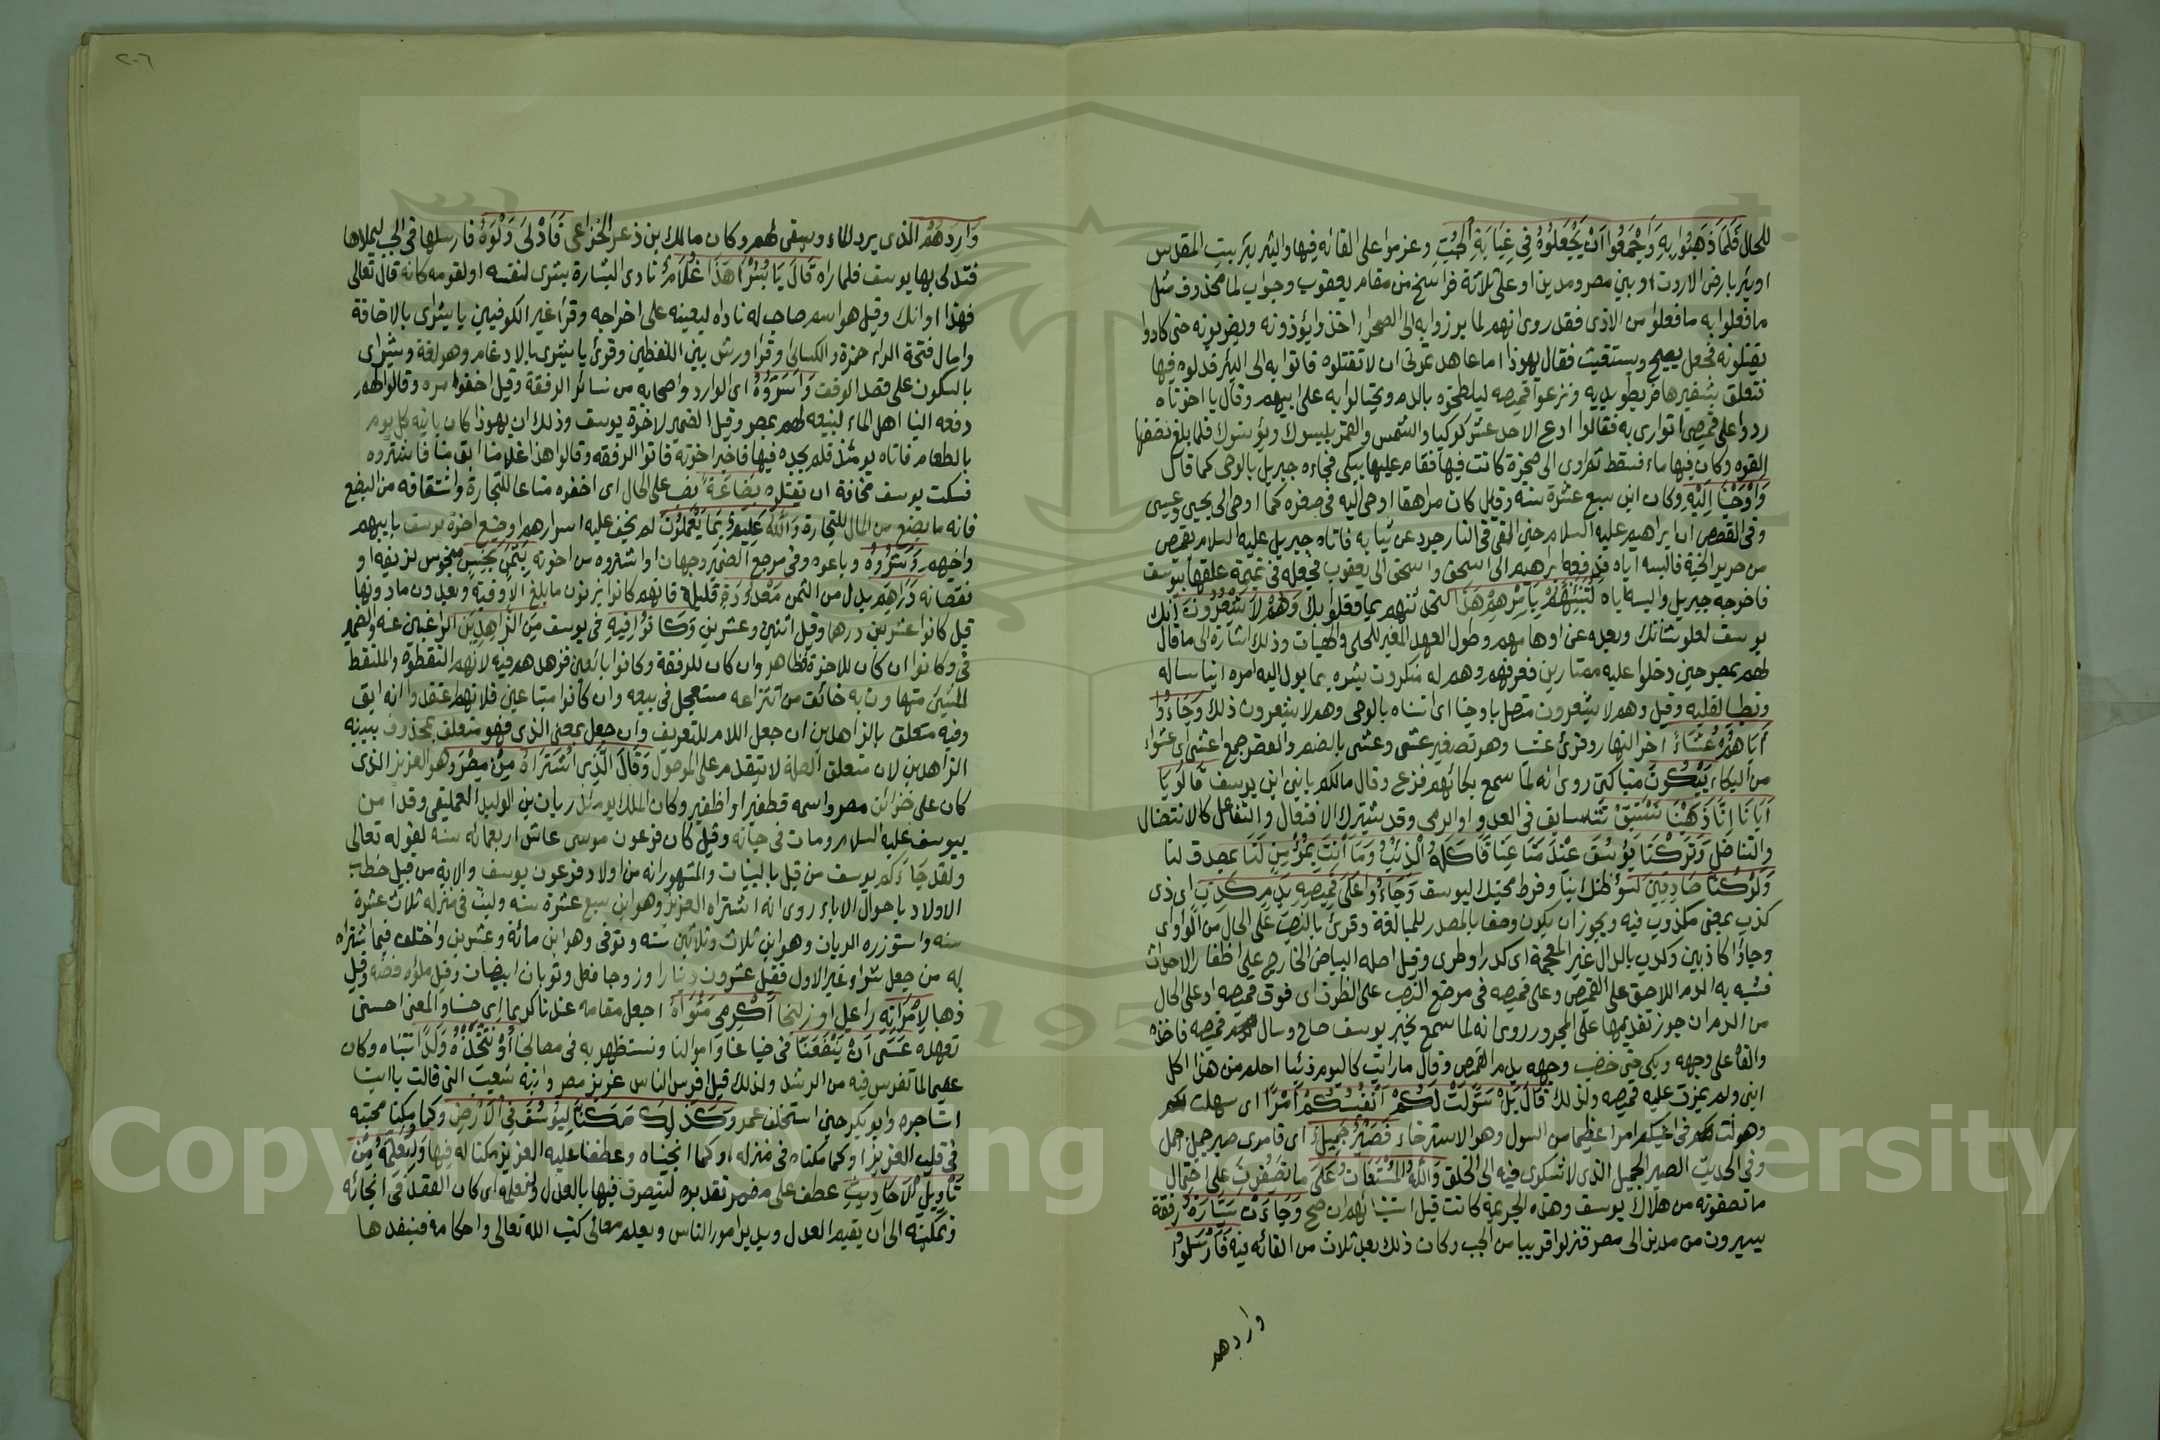 للحال فَلَمَّا ذَهَبُوا بِهِ وَاَجْمَعُوا اَنْ يَجْعَلُوهُ فِي غِيَابَةِ الْجُبِّ وعزموا على القائه فيها والبئر بئر بيت المقدس
او بئر بارض الاردن او بين مصر ومدين او على ثلاثة فراسخ من مقام يعقوب وجواب لما محذوف مثل
ما فعلوا به ما فعلوا من الاذى فقد روى انهم لما برزوا به الى الصحراء اخذوا يؤذونه ويضربونه حتى كادوا
يقتلونه فجعل يصيح ويستغيث فقال يهوذا اما عاهدتموني ان لا تقتلوه فاتوا به الى البئر فدلوه فيها
فتعلق بشفيرها فربطو يديه ونزعوا قميصه ليلطخوه بالدم ويحتالوا به على ابيهم وقال يا اخوتاه
ردوا على قميصى اتوارى به فقالوا ادع الاحد عشر كوكبا والشمس والقمر يلبسوك ويؤنسوك فلما بلغ نصفها
القوه وكان فيها ماء فسقط ثم اوى الى صخرة كانت فيها فقام عليها يبكى فجاءه جبريل بالوحى كما قال
وَاَوْحَيْنَا اِلَيْهِ وكان ابن سبع عشرة سنة وقيل كان مراهقا اوحى اليه فى صغره كما اوحى الى يحيى وعيسى
وفى القصص ان ابراهيم عليه السلام حين القى فى النار جرد عن ثيابه فاتاه جبريل عليه السلام بقميص
من حرير الجنة فالبسه اياه فدفعه ابراهيم الى اسحق واسحق الى يعقوب فجعله فى تميمة علقها بيوسف
فاخرجه جبريل والبسه اياه لَتُنَبِّئَنَّهُمْ بِاَمْرِهِمْ هَذَا لتحدثنهم بما فعلوا بك وَهُمْ لَا يَشْعُرُونَ انك
يوسف لعلو شانك وبعده عن اوهامهم وطول العهد المغير للحلى والهيأت وذلك اشارة الى ما قال
لهم بمصر حين دخلوا عليه ممتارين فعرفهم وهم له منكرون بشره بما يول اليه امره ايناسا له
وتطيبا لقلبه وقيل وهم لا يشعرون متصل باوحينا اى انسناه بالوحى وهم لا يشعرون ذلك وَجَاءُوا
اَبَاهُمْ عِشَاءً اخر النهار وقرئ عشيا وهو تصغير عشى وعشى بالضم والقصر جمع اعشى اى عشوا
من البكاء يَبْكُونَ متباكين روى انه لما سمع بكائهم فزع وقال مالكم يا بنى اين يوسف قَالُوا يَا
اَبَانَا اِنَّا ذَهَبْنَا نَسْتَبِقُ نتسابق فى العدو او الرمى وقد يشترك الافتعال والتفاعل كالانتضال
والتناضل وَتَرَكْنَا يُوسُفَ عِنْدَ مَتَاعِنَا فَاَكَلَهُ الذِّئْبُ وَمَا اَنْتَ بِمُؤْمِنٍ لَنَا بمصدق لنا
وَلَوْ كُنَّا صَادِقِينَ لسوء ظنك بنا وفرط محبتك ليوسف وَجَاءُوا عَلَى قَمِيصِهِ بِدَمٍ كَذِبٍ اى ذى
كذب بمعنى مكذوب فيه ويجوز ان يكون وصفا بالمصدر للمبالغة وقرئ بالنصب على الحال من الواو اى
وجاؤا كاذبين وكدب بالدال غير المعجمة اى كدر او طرى وقيل اصله البياض الخارج على اظفار الاحداث
فشبه به الدم اللاصق على القميص وعلى قميصه فى موضع النصب على الظرف اى فوق قميصه او على الحال
من الدم ان جوز تقديمها على المجرور روى انه لما سمع بخبر يوسف صاح وسال قميصه فاخذه
والقاه على وجهه وبكى حتى خضب وجهه بدم القميص وقال ما رايت كاليوم ذئبا احلم من هذا اكل
ابنى ولم يمزق عليه قميصه ولذلك قَالَ بَلْ سَوَّلَتْ لَكُمْ اَنْفُسُكُمْ اَمْرًا اى سهلت لكم
وهونت لكم فى اعينكم امرا عظيما من السول وهو الاسترخاء فَصَبْرٌ جَمِيلٌ اى فامرى صبر جميل اجمل
وفى الحديث الصبر الجميل الذى لا شكوى فيه الى الخلق وَاللَّهُ الْمُسْتَعَانُ عَلَى مَا تَصِفُونَ على احتمال
ما تصفونه من هلاك يوسف وهذه الجريمة كانت قبل استنبائهم ان صح وَجَاءَتْ سَيَّارَةٌ رفقة
يسيرون من مدين الى مصر فنزلوا قريبا من الجب وكان ذلك بعد ثلاث من القائه فيه فَاَرْسَلُوا
واردهم
٢٠٦
وَارِدَهُمْ الذى يرد الماء ويسقى لهم وكان مالك بن ذعر الخزاعى فَاَدْلَى دَلْوَهُ فارسلها فى الجب ليملاها
فتدلى بها يوسف فلما راه قَالَ يَا بُشْرَا هَذَا غُلَامٌ نادى البشارة بشرى لنفسه او لقومه كانه قال تعالى
فهذا اوانك وقيل هو اسم صاحب له ناداه ليعينه على اخراجه وقرا غير الكوفيين يا بشراى بالاضافة
وامال فتحة الراء حمزة والكسائى وقرا ورش بين اللفظين وقرئ يا بشرى بالادغام وهو لغة وبشراى
بالسكون على قصد الوقف وَاَسَرُّوهُ اى الوارد واصحابه من سائر الرفقة وقيل اخفوا امره وقالوا لهم
دفعه الينا اهل الماء لنبيعه لهم بمصر وقيل الضمير لاخوة يوسف وذلك ان يهوذا كان ياتيه كل يوم
بالطعام فاتاه يومئذ فلم يجده فيها فاخبر اخوته فاتوا الرفقه وقالوا هذا غلامنا ابق منا فاشتروه
فسكت يوسف مخافة ان يقتلوه بِضَاعَةً نصب على الحال اى اخفوه متاعا للتجارة واشتقاقه من البضع
فانه ما بضع من المال للتجارة وَاللَّهُ عَلِيمٌ بِمَا يَعْمَلُونَ لم يخف عليه اسرارهم او صنع اخوة يوسف بابيهم
واخيهم وَشَرَوْهُ وباعوه وفى مرجع الضمير وجهان او اشتروه من اخوته بِثَمَنٍ بَخْسٍ مبخوس لزيفه او
نقصانه دَرَاهِمَ بدل من الثمن مَعْدُودَةٍ قليلة فانهم كانوا يزنون ما بلغ الاوقية ويعدون ما دونها
قيل كانوا عشرين درهما وقيل اثنين وعشرين وَكَانُوا فِيهِ فى يوسف مِنَ الزَّاهِدِينَ الراغبين عنه والضمير
فى وكانوا ان كان للاخوة فظاهر وان كان للرفقة وكانوا بائعين فزهدهم فيه لانهم التقطوه والملتقط
للشيئ متهاون به خائف من انتزاعه مستعجل فى بيعه وان كانوا مبتاعين فلانهم اعتقدوا انه ابق
وفيه متعلق بالزاهدين ان جعل اللام للتعريف وان جعل بمعنى الذى فهو متعلق بمحذوف يبينه
الزاهدين لان متعلق الصلة لا يتقدم على الموصول وَقَالَ الَّذِى اشْتَرَاهُ مِنْ مِصْرَ وهو العزيز الذى
كان على خزائن مصر واسمه قطفير او اظفير وكان الملك يومئذ ريان بن الوليد العمليقى وقد امن
بيوسف عليه السلام ومات فى حياته وقيل كان فرعون موسى عاش اربعمائه سنة لقوله تعالى
ولقد جاءكم يوسف من قبل بالبينات والمشهور انه من اولاد فرعون يوسف والاية من قبيل خطاب
الاولاد باحوال الاباء روى انه اشتراه العزيز وهو ابن سبع عشرة سنه ولبث فى منزله ثلاث عشرة
سنه واستوزره الريان وهو ابن ثلاث وثلاثين سنه وتوفى وهو ابن مائة وعشرين واختلف فيما شتراه
به من جعل شراءه غير الاول فقيل عشرون دينارا وزوجا نعل وثوبان ابيضان وقيل ملؤه فضه وقيل
ذهبا لِامْرَاَتِهِ راعيل او زليخا اَكْرِمِى مَثْوَاهُ اجعلى مقامه عندنا كريما اى حسنا والمعنى احسنى
تعهده عَسَى اَنْ يَنْفَعَنَا فى ضياعنا واموالنا ونستظهر به فى مصالحنا اَوْ نَتَّخِذَهُ وَلَدًا نتبناه وكان
عقيما لما تفرس فيه من الرشد ولذلك قيل افرس الناس عزيز مصر وابنة شعيب التى قالت ياابت
استاجره وابو بكر حين استخلف عمر وَكَذَلِكَ مَكَّنَّا لِيُوسُفَ فِى الْاَرْضِ وكما مكنا محبته
فى قلب العزيز او كما مكناه فى منزله او كما انجيناه وعطفنا عليه العزيز مكنا له فيها وَلِنُعَلِّمَهُ مِنْ
تَأْوِيلِ الْاَحَادِيثِ عطف على مضمر تقديره ليتصرف فيها بالعدل ولنعلمه اى كان القصد فى انجائه
وتمكينه الى ان يقيم العدل ويدبر امور الناس ويعلم معانى كتب الله تعالى واحكامه فينفذها
Copyright © King Saud University
195